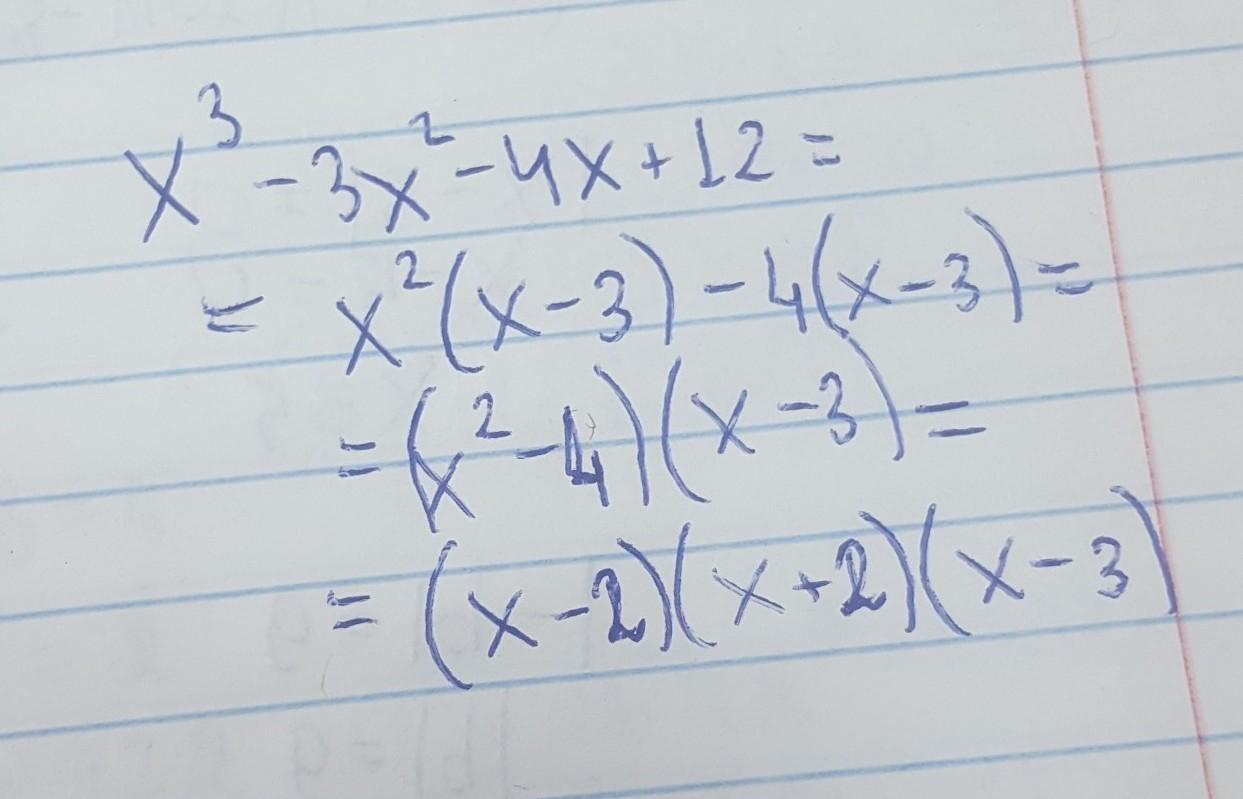 x³ - 3x² - 4x + 12 =
= x² (x - 3) - 4(x - 3) =
= (x² - 4)(x - 3) =
= (x - 2)(x + 2)(x - 3)